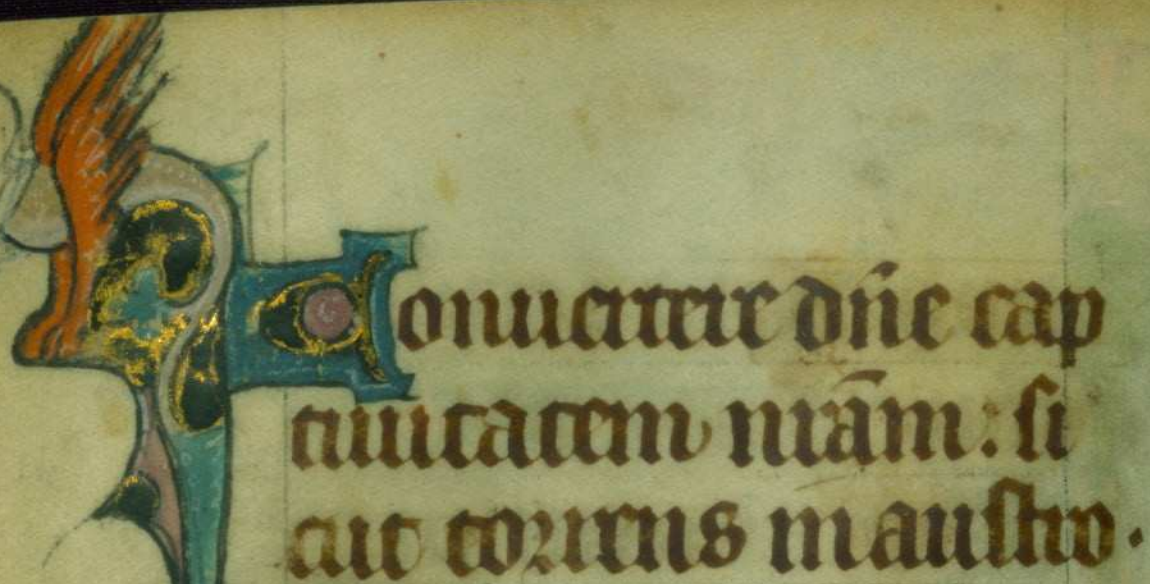 Conuertere dn̄e cap
tiuitatem nr̄am : si
cut torrens in austro .